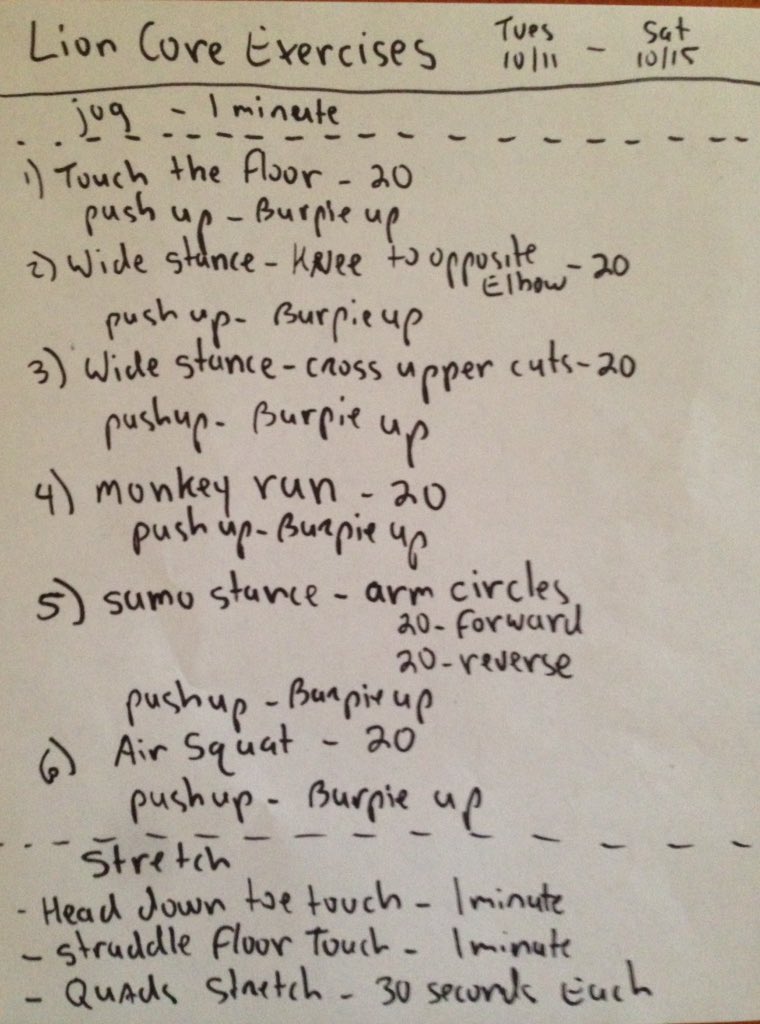 Lion Core Exercises Tues 10/11 - Sat 10/15
jog - 1 minute
1) Touch the floor - 20
push up - Burpie up
2) Wide stance - Knee to opposite Elbow - 20
push up - Burpie up
3) Wide stance - cross upper cuts - 20
pushup - Burpie up
4) monkey run - 20
push up - Burpie up
5) sumo stance - arm circles
20 - forward
20 - reverse
pushup - Burpie up
6) Air Squat - 20
pushup - Burpie up
Stretch
- Head down toe touch - 1 minute
- straddle floor Touch - 1 minute
- Quads stretch - 30 seconds Each